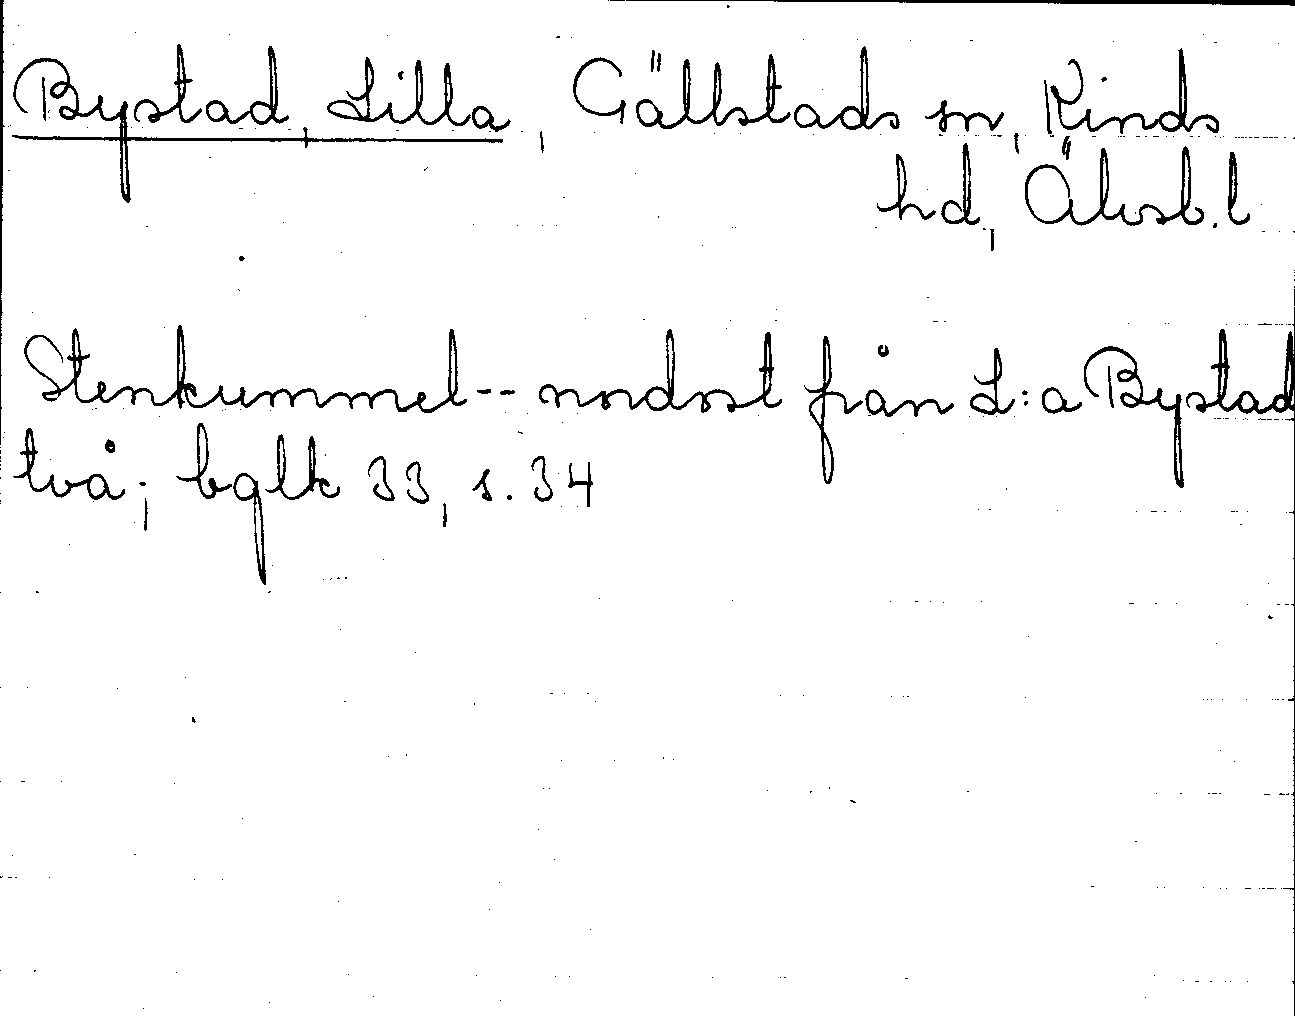 Bystad, Lilla, Gällstads sn, Kinds
hd, Älvsb.l
Stenkummel-- nordost från L:a Bystad
två; bglk 33, s. 34